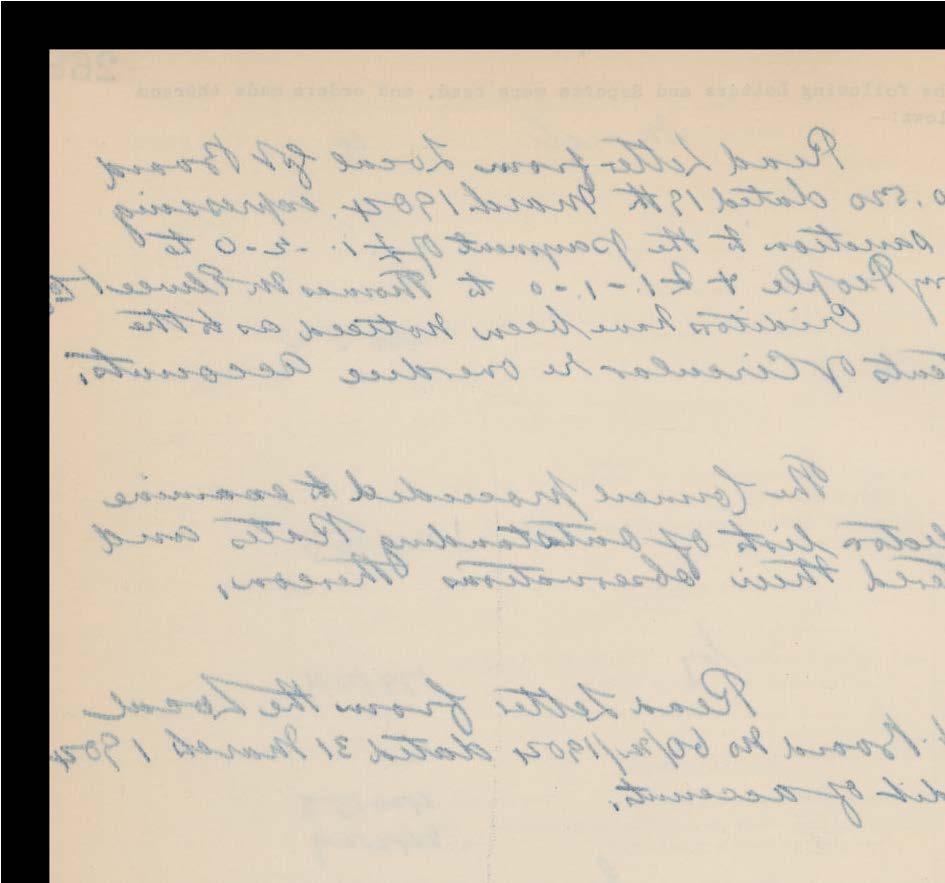 following Letters and Reports were read, and orders made thereon
lows:—
Read Letter from Local Govt Board
dated 19th March 1904. expressing
sanction to the payment of £1.-2-0 to
People & £1-1-0 to Thomas
Creditors have been noticed as to the
of Circular re Overdue Accounts.
The Council proceeded to examine
list of outstanding Rates and
their observations thereon.
Read Letter from the Local
Board No dated 31 March 1904
of accounts.